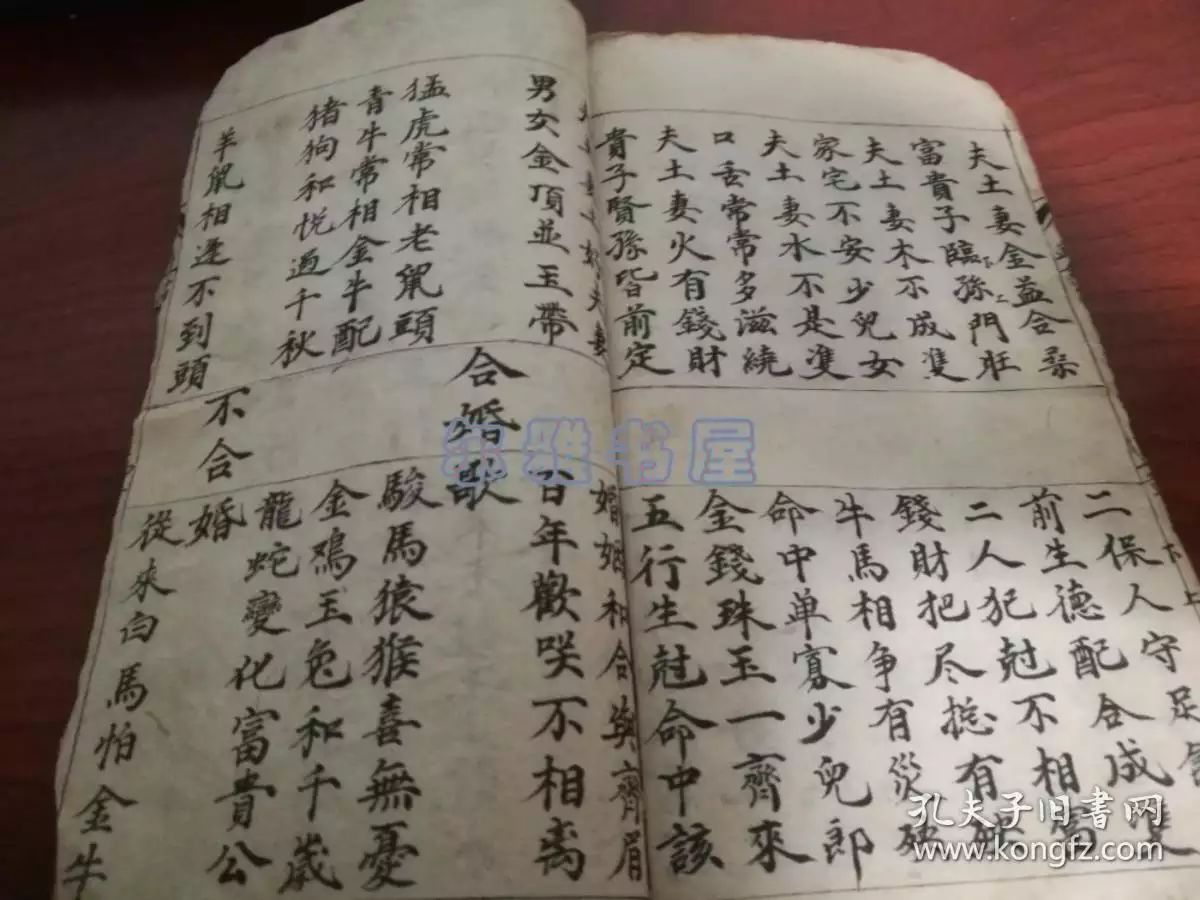 夫土妻金益合
富貴子臨孫門旺
夫土妻木不成隻
家宅不安少兒女
夫土妻水不是隻
口舌常常多滋繞
夫土妻火有錢財
貴子賢孫皆前定
二保人守
前生德配合成隻
二人犯尅不相
錢財把尽捴有
牛馬相争有災
命中单寡少兒郎
金錢珠玉一齊來
五行生尅命中該
夫妻
男女金頂並玉帶
婚姻和合與齊眉
百年歡咲不相离
合婚歌
猛虎常相老鼠頭
青牛常相金牛配
猪狗和悦過千秋
駿馬猿猴喜無憂
金鷄玉兔和千歲
龍蛇變化富貴公
不合
婚
羊鼠相逢不到頭
從來白馬怕金牛
雅书屋
孔夫子旧書网
www.kongfz.com